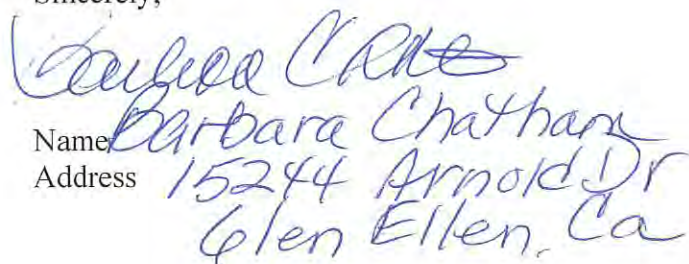 Sincerely,
Name Barbara Chatham
Address 15244 Arnold Dr
Glen Ellen, Ca